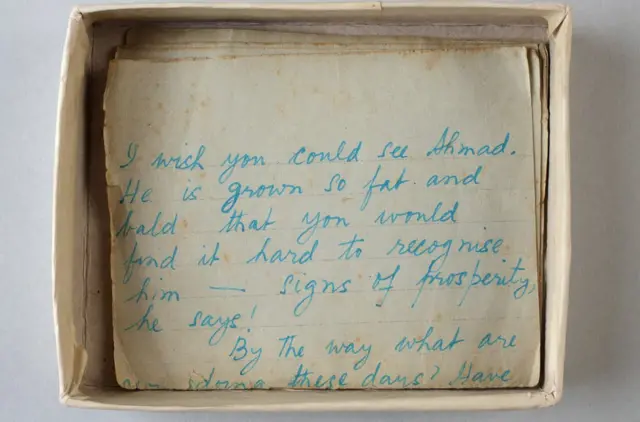 I wish you could see Ahmad.
He is grown so fat and
bald that you would
find it hard to recognise
him — signs of prosperity,
he says!
By the way what are
you doing these days? Have